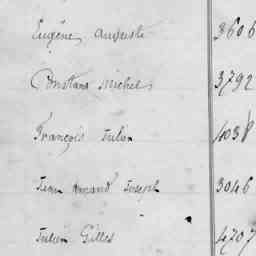 Eugène Auguste 3606
Constans Michel 3792
François Julien 4038
Jean Armand Joseph 3046
Julien Gilles 4707